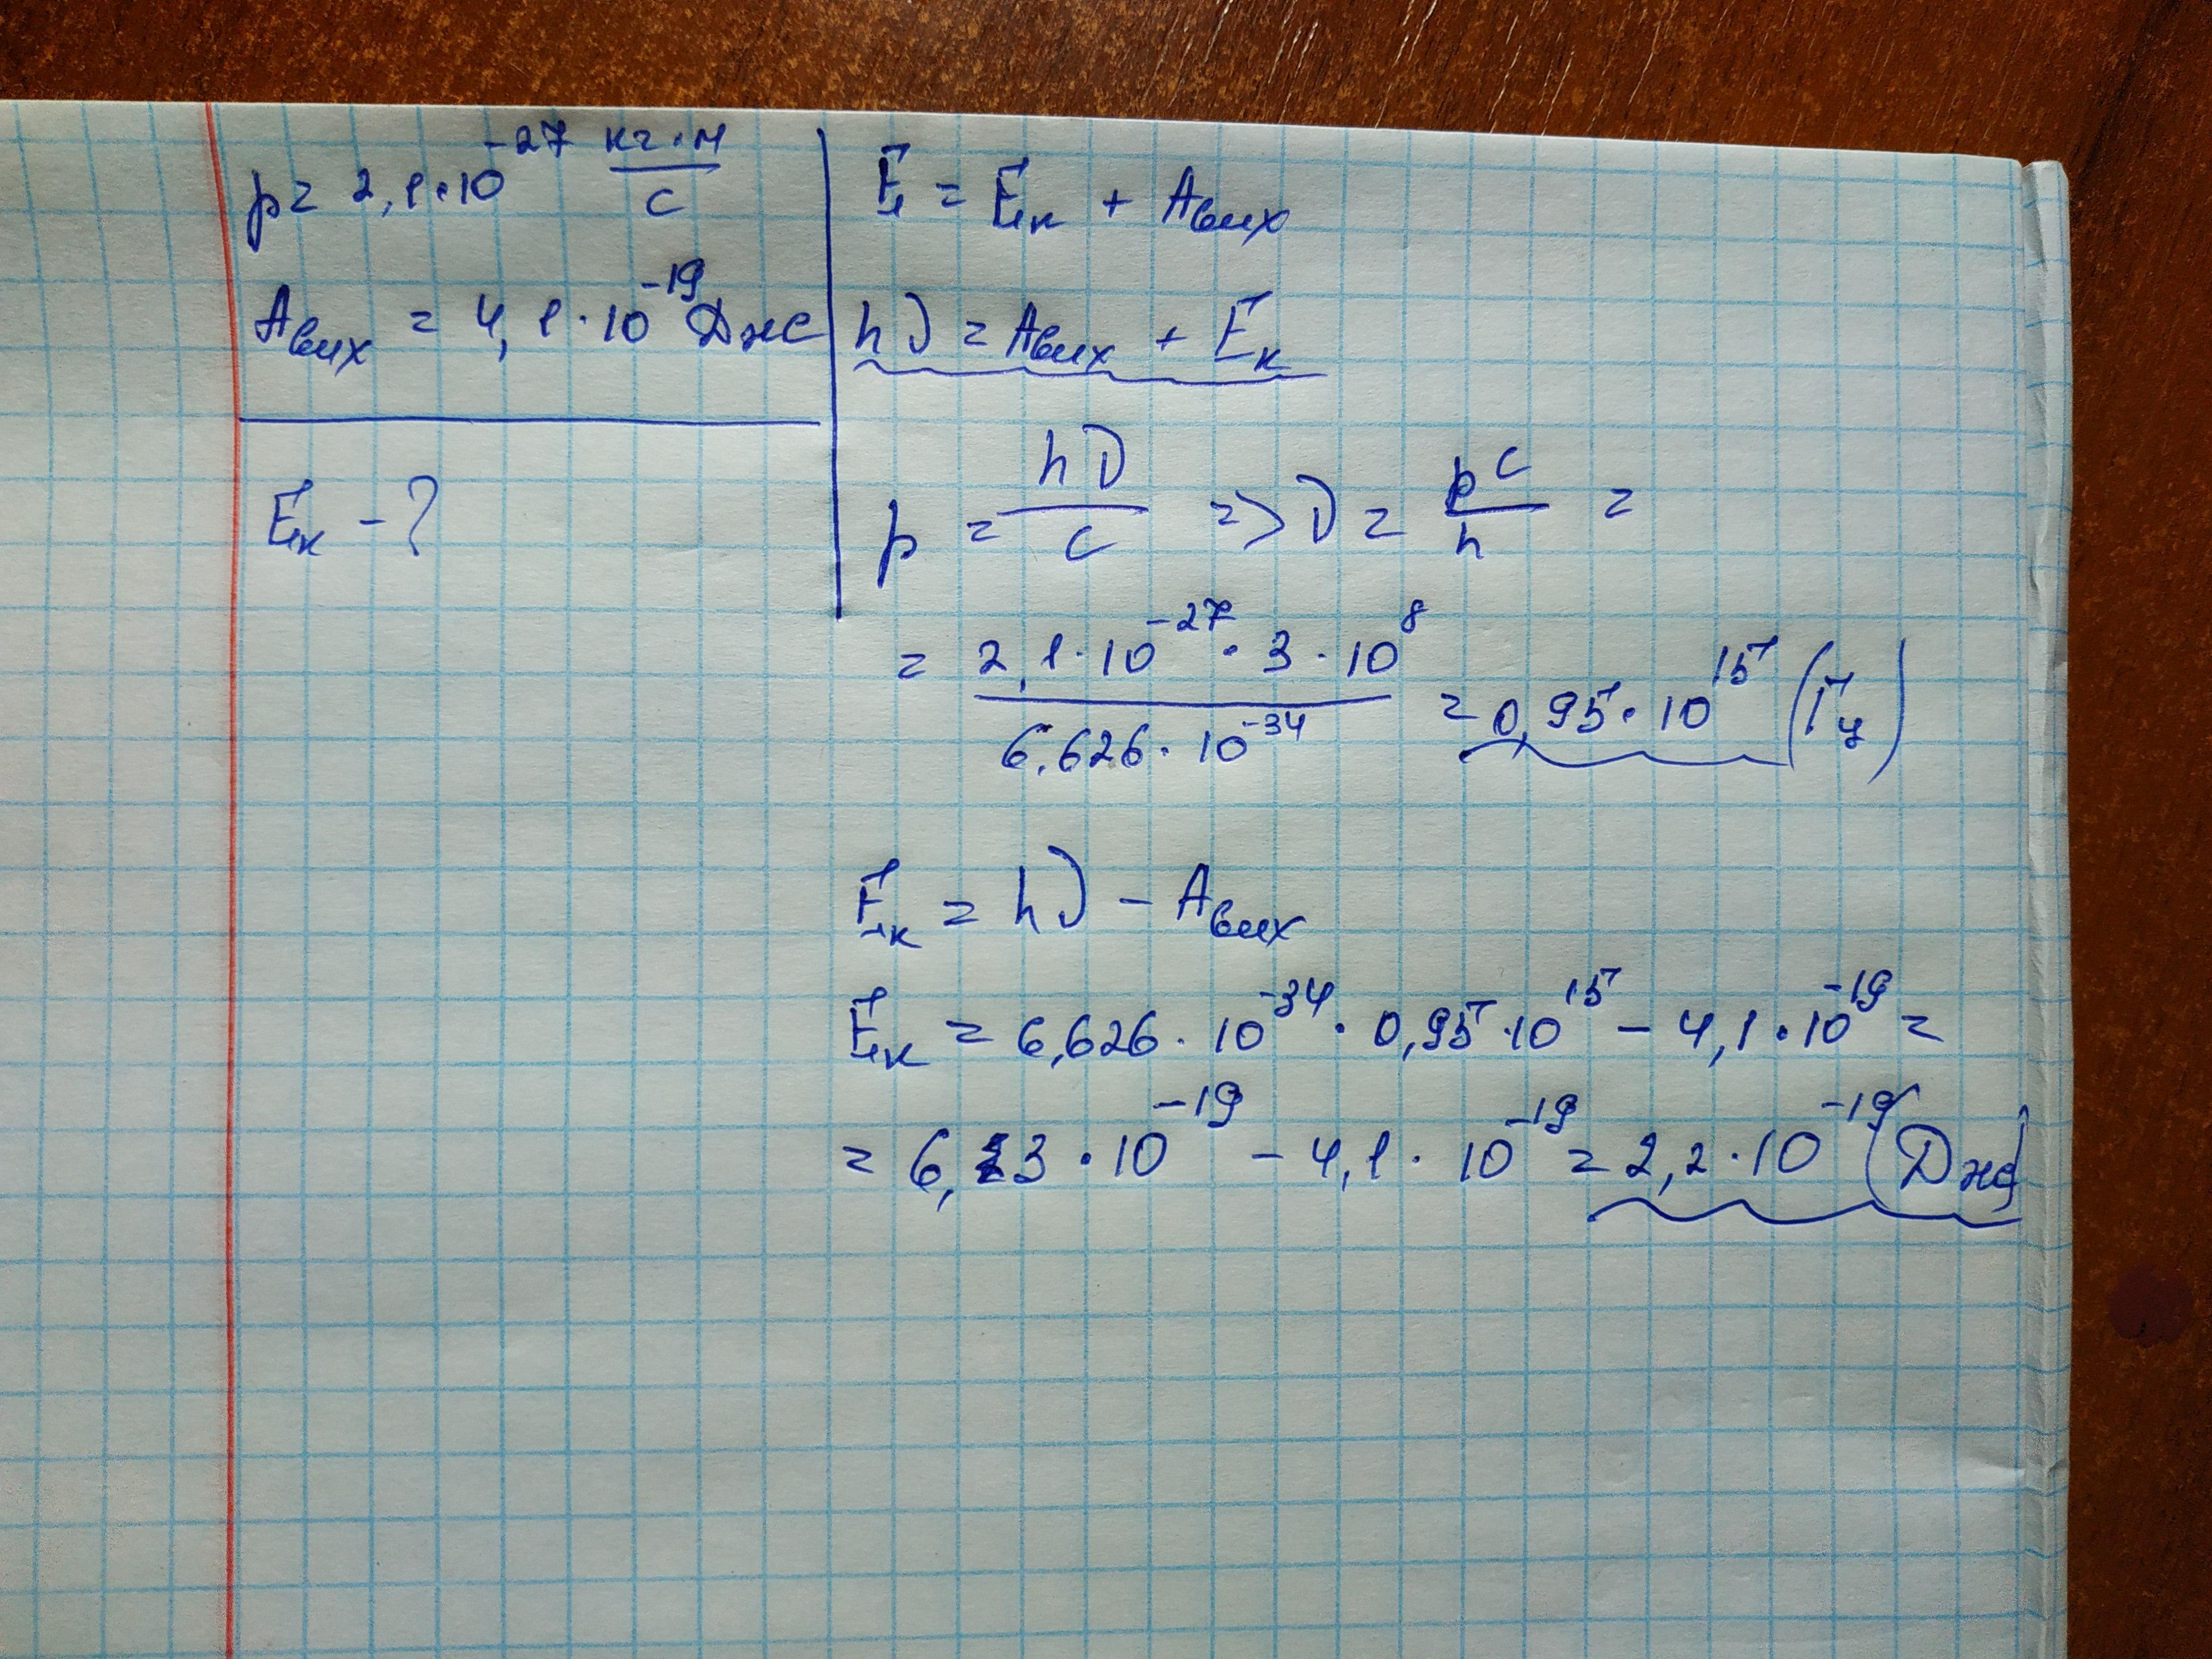 p = 2,1·10^-27 кг·м/с
Aвих = 4,1·10^-19 Дж
Eк - ?
E = Eк + Aвих
hν = Aвих + Eк
p = hν/c => ν = pc/h =
= 2,1·10^-27 · 3·10^8 / 6.626·10^-34 = 0,95·10^15 (Гц)
Eк = hν - Aвих
Eк = 6,626·10^-34 · 0,95·10^15 - 4,1·10^-19 =
= 6,23·10^-19 - 4,1·10^-19 = 2,2·10^-19 (Дж)